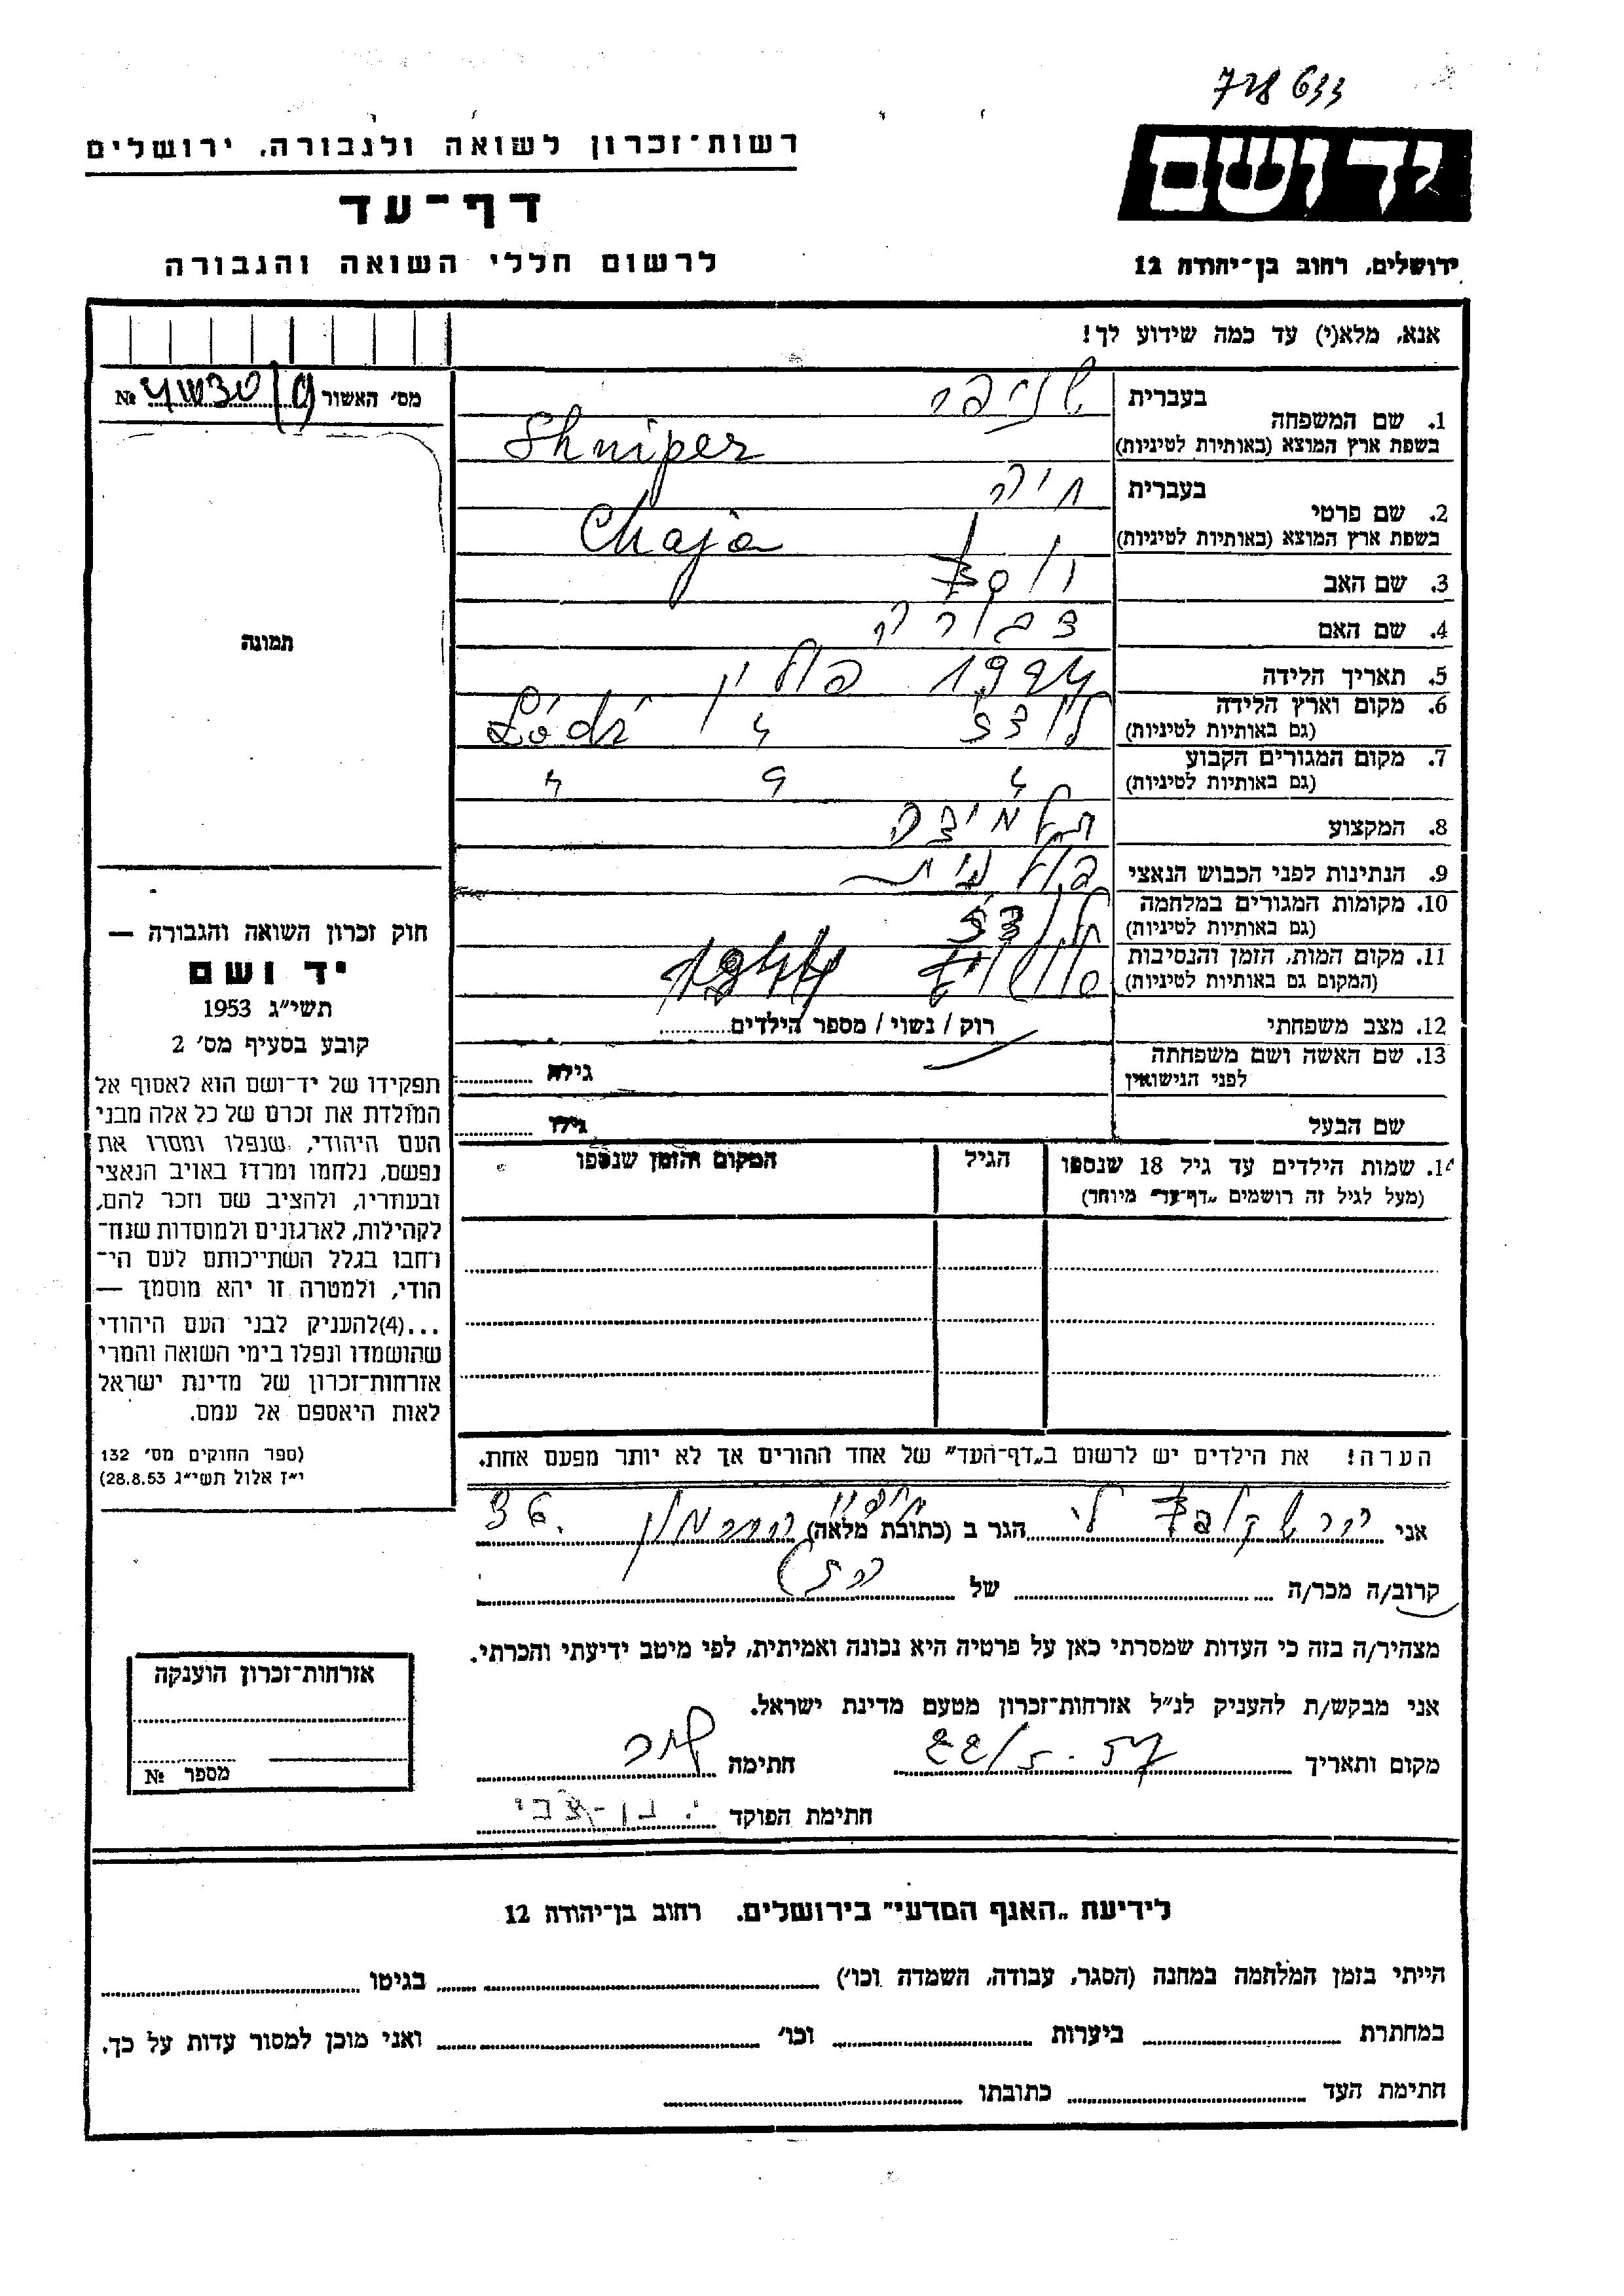 728633
רשות־זכרון לשואה ולגבורה, ירושלים
דף־עד
לרשום חללי השואה והגבורה
יד ושם
ירושלים, רחוב בן־יהודה 12
אנא, מלא(י) עד כמה שידוע לך!
מס׳ האשור №
תמונה
1. שם המשפחה
בעברית שניפר
בשפת ארץ המוצא (באותיות לטיניות) Shniper
2. שם פרטי
בעברית חיה
בשפת ארץ המוצא (באותיות לטיניות) Chaja
3. שם האב
4. שם האם דבורה
5. תאריך הלידה 1924 פולין
6. מקום וארץ הלידה
(גם באותיות לטיניות) לודז Łódź
7. מקום המגורים הקבוע
(גם באותיות לטיניות)
8. המקצוע תלמידה
9. הנתינות לפני הכבוש הנאצי פולנית
10. מקומות המגורים במלחמה
(גם באותיות לטיניות) לודז
11. מקום המות, הזמן והנסיבות
(המקום גם באותיות לטיניות)
12. מצב משפחתי רוק / נשוי / מספר הילדים
13. שם האשה ושם משפחתה
לפני הנישואין גילה
שם הבעל גילו
14. שמות הילדים עד גיל 18 שנספו
(מעל לגיל זה רושמים „דף־עד״ מיוחד)
הגיל
המקום והזמן שנספו
הערה! את הילדים יש לרשום ב„דף־העד״ של אחד ההורים אך לא יותר מפעם אחת.
חוק זכרון השואה והגבורה —
יד ושם
תשי״ג 1953
קובע בסעיף מס׳ 2
תפקידו של יד־ושם הוא לאסוף אל
המולדת את זכרם של כל אלה מבני
העם היהודי, שנפלו ומסרו את
נפשם, נלחמו ומרדו באויב הנאצי
ובעוזריו, ולהציב שם וזכר להם,
לקהילות, לארגונים ולמוסדות שנח־
רחבו בגלל השתייכותם לעם הי־
הודי, ולמטרה זו יהא מוסמך —
...(4)להעניק לבני העם היהודי
שהושמדו ונפלו בימי השואה והמרי
אזרחות־זכרון של מדינת ישראל
לאות היאספם אל עמם.
(ספר החוקים מס׳ 132
י״ז אלול תשי״ג 28.8.53)
אני הגר ב (כתובת מלאה) חיפה 36
קרוב/ה מכר/ה של
מצהיר/ה בזה כי העדות שמסרתי כאן על פרטיה היא נכונה ואמיתית, לפי מיטב ידיעתי והכרתי.
אני מבקש/ת להעניק לנ״ל אזרחות־זכרון מטעם מדינת ישראל.
מקום ותאריך 22/5.57 חתימה
חתימת הפוקד י. בן-צבי
אזרחות־זכרון הוענקה
מספר №
לידיעת „האגף המדעי״ בירושלים, רחוב בן־יהודה 12
הייתי בזמן המלחמה במחנה (הסגר, עבודה, השמדה וכו׳) בגיטו
במחתרת ביערות וכו׳ ואני מוכן למסור עדות על כך.
חתימת העד כתובתו